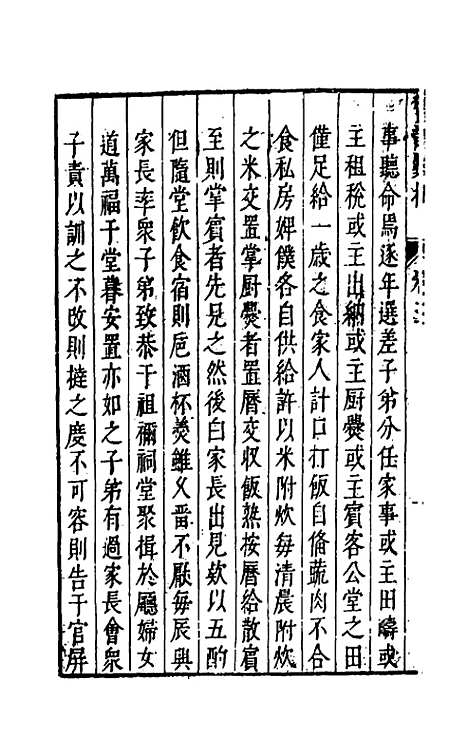 事聽命焉逐年選差子弟分任家事或主田疇或
主租稅或主出納或主厨爨或主賓客公堂之田
僅足給一歳之食家人計口打飯自僃蔬肉不合
食私房婢僕各自供給許以米附炊每清晨附炊
之米交置掌厨爨者置曆交収飯熟按曆給散賓
至則掌賓者先見之然後白家長出見欵以五酌
但隨堂飲食宿則巵酒杯羮雖久畱不厭每辰興
家長率衆子弟致恭于祖禰祠堂聚揖於廳婦女
道萬福于堂暮安置亦如之子弟有過家長會衆
子責以訓之不改則撻之度不可容則告于官屏